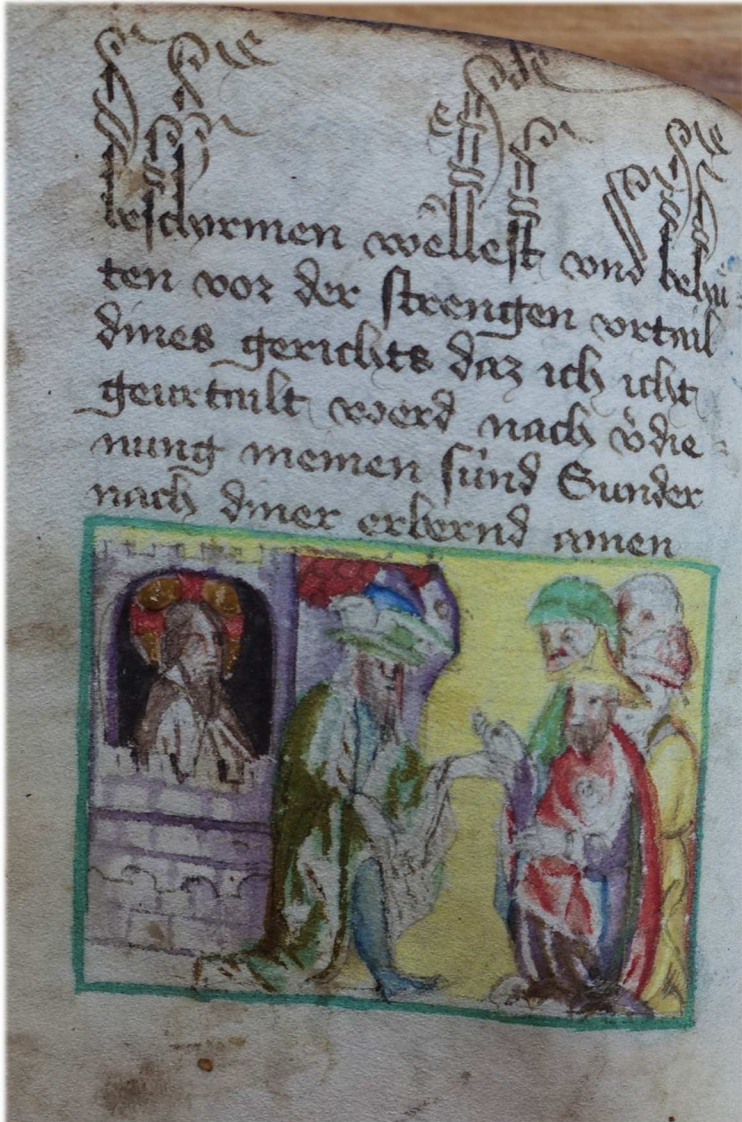 beschyrmen wellest vnd behü
ten vor der strengen vrtail
dines gerichts daz ich icht
geurtailt werd nach v̉die
nung meinen sünd Sunder
nach diner erbermd amen